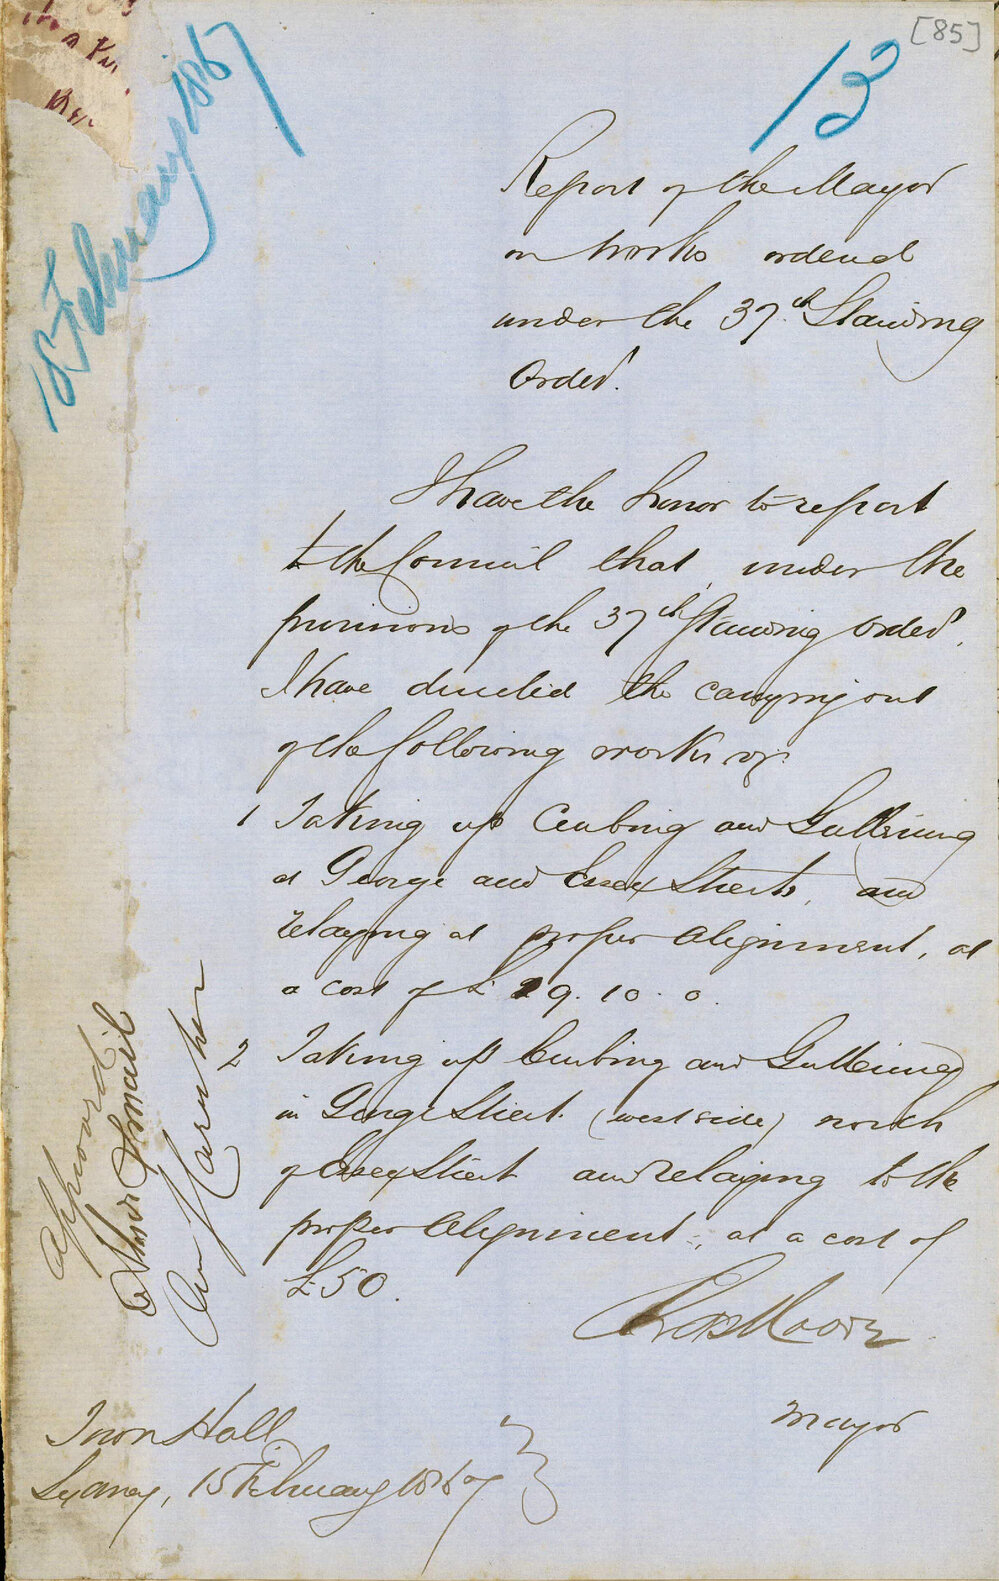 [85]
13
18 February 1867
Report of the Mayor
on works ordered
under the 37th Standing
Order.
I have the honor to report
to the Council that, under the
provisions of the 37th Standing Order,
I have directed the carrying out
of the following works viz:
1 Taking up Curbing and Guttering
at George and Essex Streets, and
relaying at proper alignment, at
a cost of £29.10.0.
2 Taking up Curbing and Guttering
in George Street (west side) north
of Essex Street and relaying to the
proper alignment, at a cost of
£50.
Chas Moore
Mayor
Approved
Town Hall
Sydney, 15 February 1867